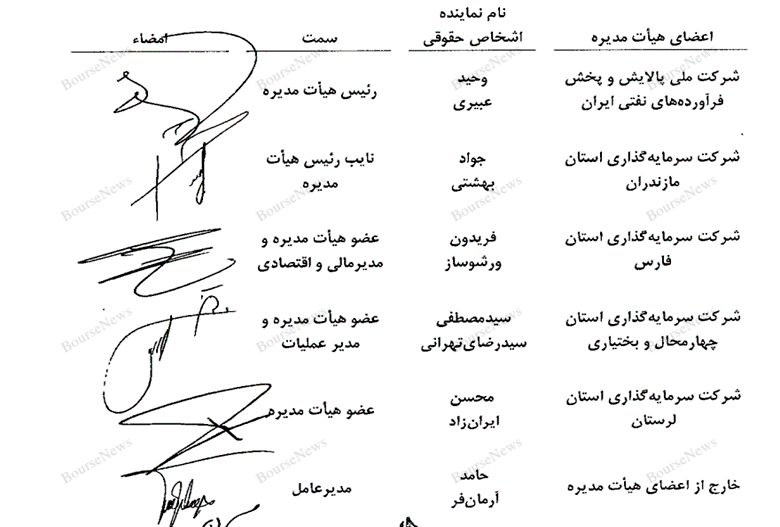 اعضای هیأت مدیره
نام نماینده
اشخاص حقوقی
سمت
امضاء
شرکت ملی پالایش و پخش
فرآورده‌های نفتی ایران
وحید
عبیری
رئیس هیأت مدیره
شرکت سرمایه‌گذاری استان
مازندران
جواد
بهشتی
نایب رئیس هیأت
مدیره
شرکت سرمایه‌گذاری استان
فارس
فریدون
ورشوساز
عضو هیأت مدیره و
مدیرمالی و اقتصادی
شرکت سرمایه‌گذاری استان
چهارمحال و بختیاری
سیدمصطفی
سیدرضای‌تهرانی
عضو هیأت مدیره و
مدیر عملیات
شرکت سرمایه‌گذاری استان
لرستان
محسن
ایران‌زاد
عضو هیأت مدیره
خارج از اعضای هیأت مدیره
حامد
آرمان‌فر
مدیرعامل
BourseNews